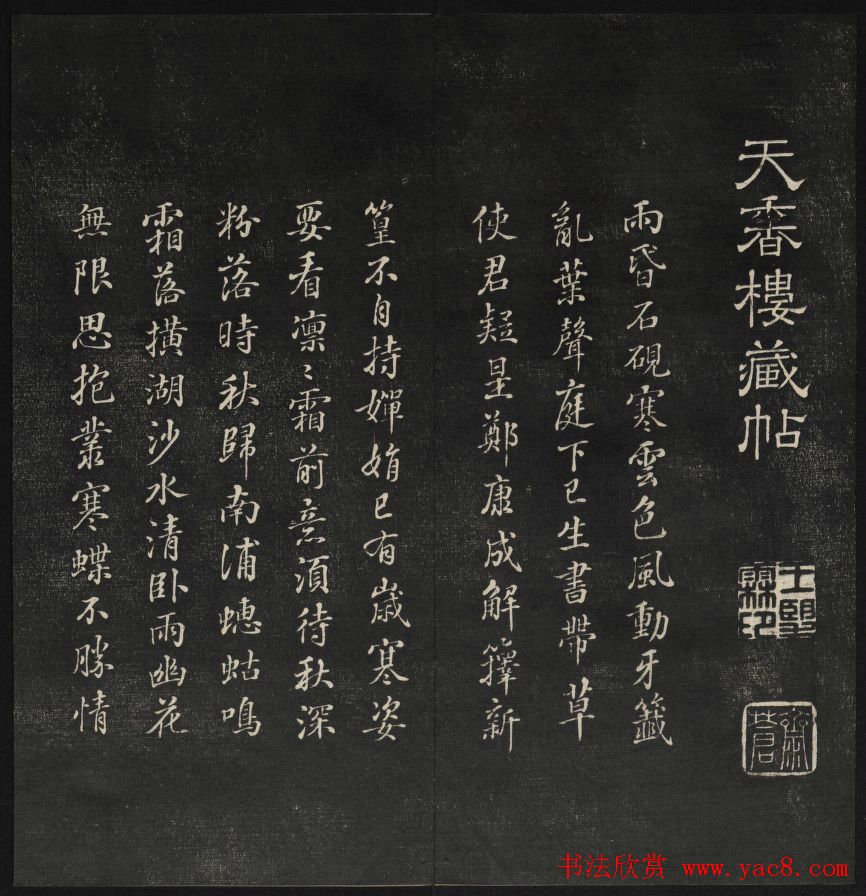 天香樓藏帖
雨昏石硯寒雲色風動牙籤
亂葉聲庭下已生書帶草
使君疑是鄭康成解籜新
篁不自持嬋娟已有歲寒姿
要看凛〻霜前意須待秋深
粉落時秋歸南浦蟪蛄鳴
霜落橫湖沙水清卧雨幽花
無限思抱叢寒蝶不勝情
书法欣赏 www.yac8.com